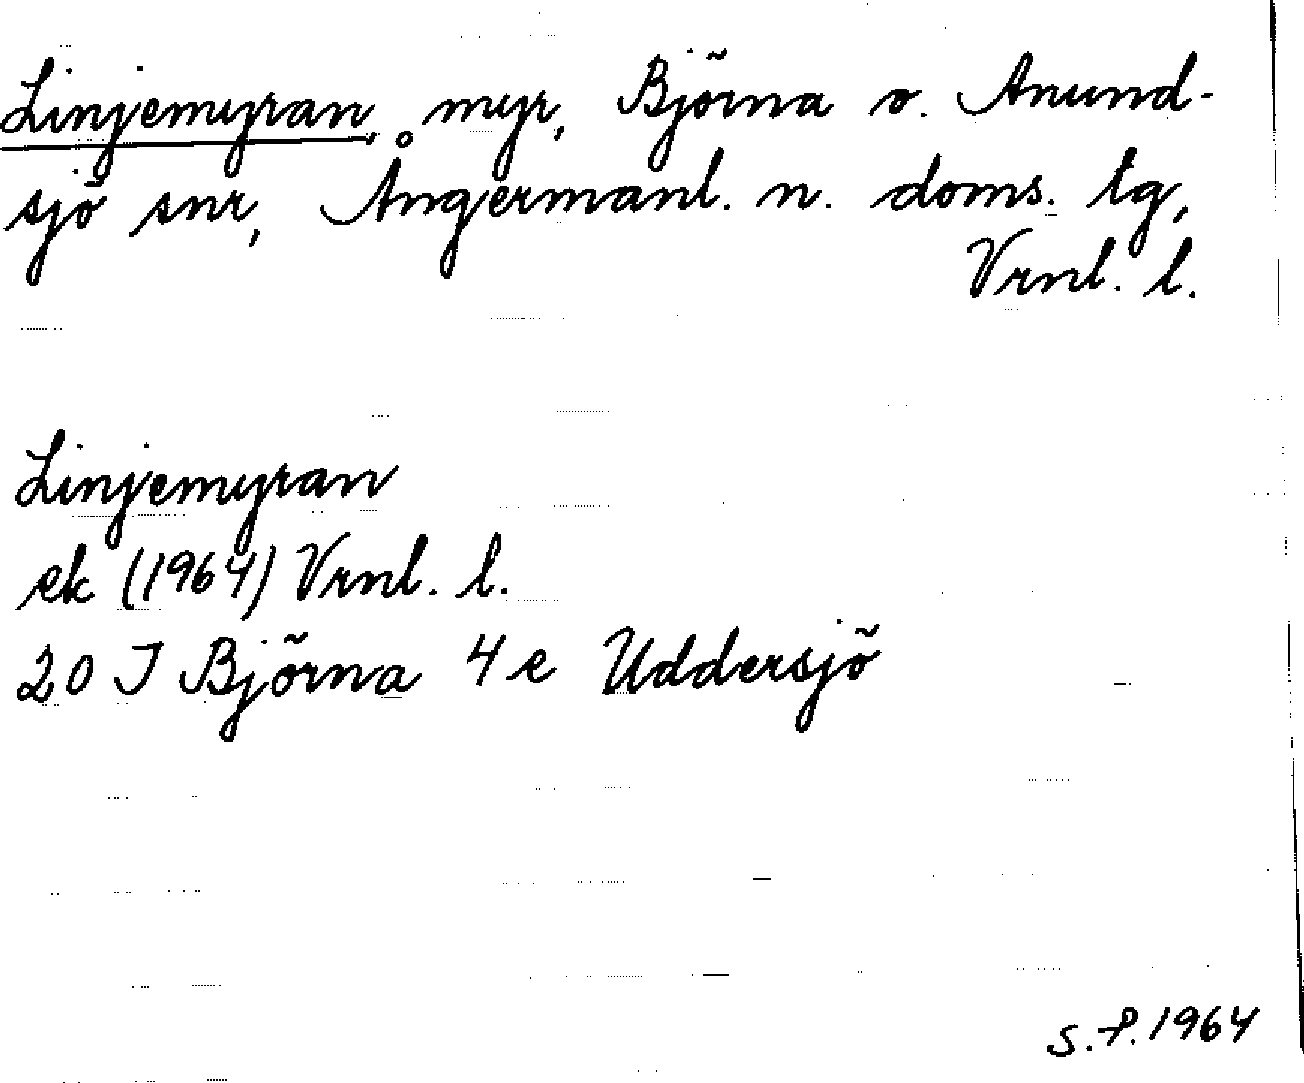 Linjemyran, myr, Björna o. Anund-
sjö snr, Ångermanl. n. doms. tg,
Vrnl. l.
Linjemyran
ek (1964) Vrnl. l.
20 I Björna 4 e Uddersjö
S.P. 1964